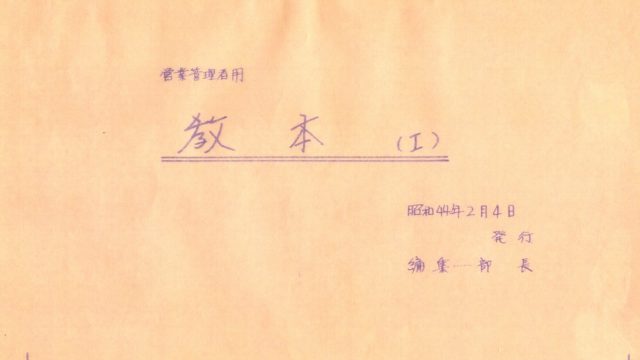 営業管理者用
教 本 (I)
昭和44年2月4日
発行
編集……部長